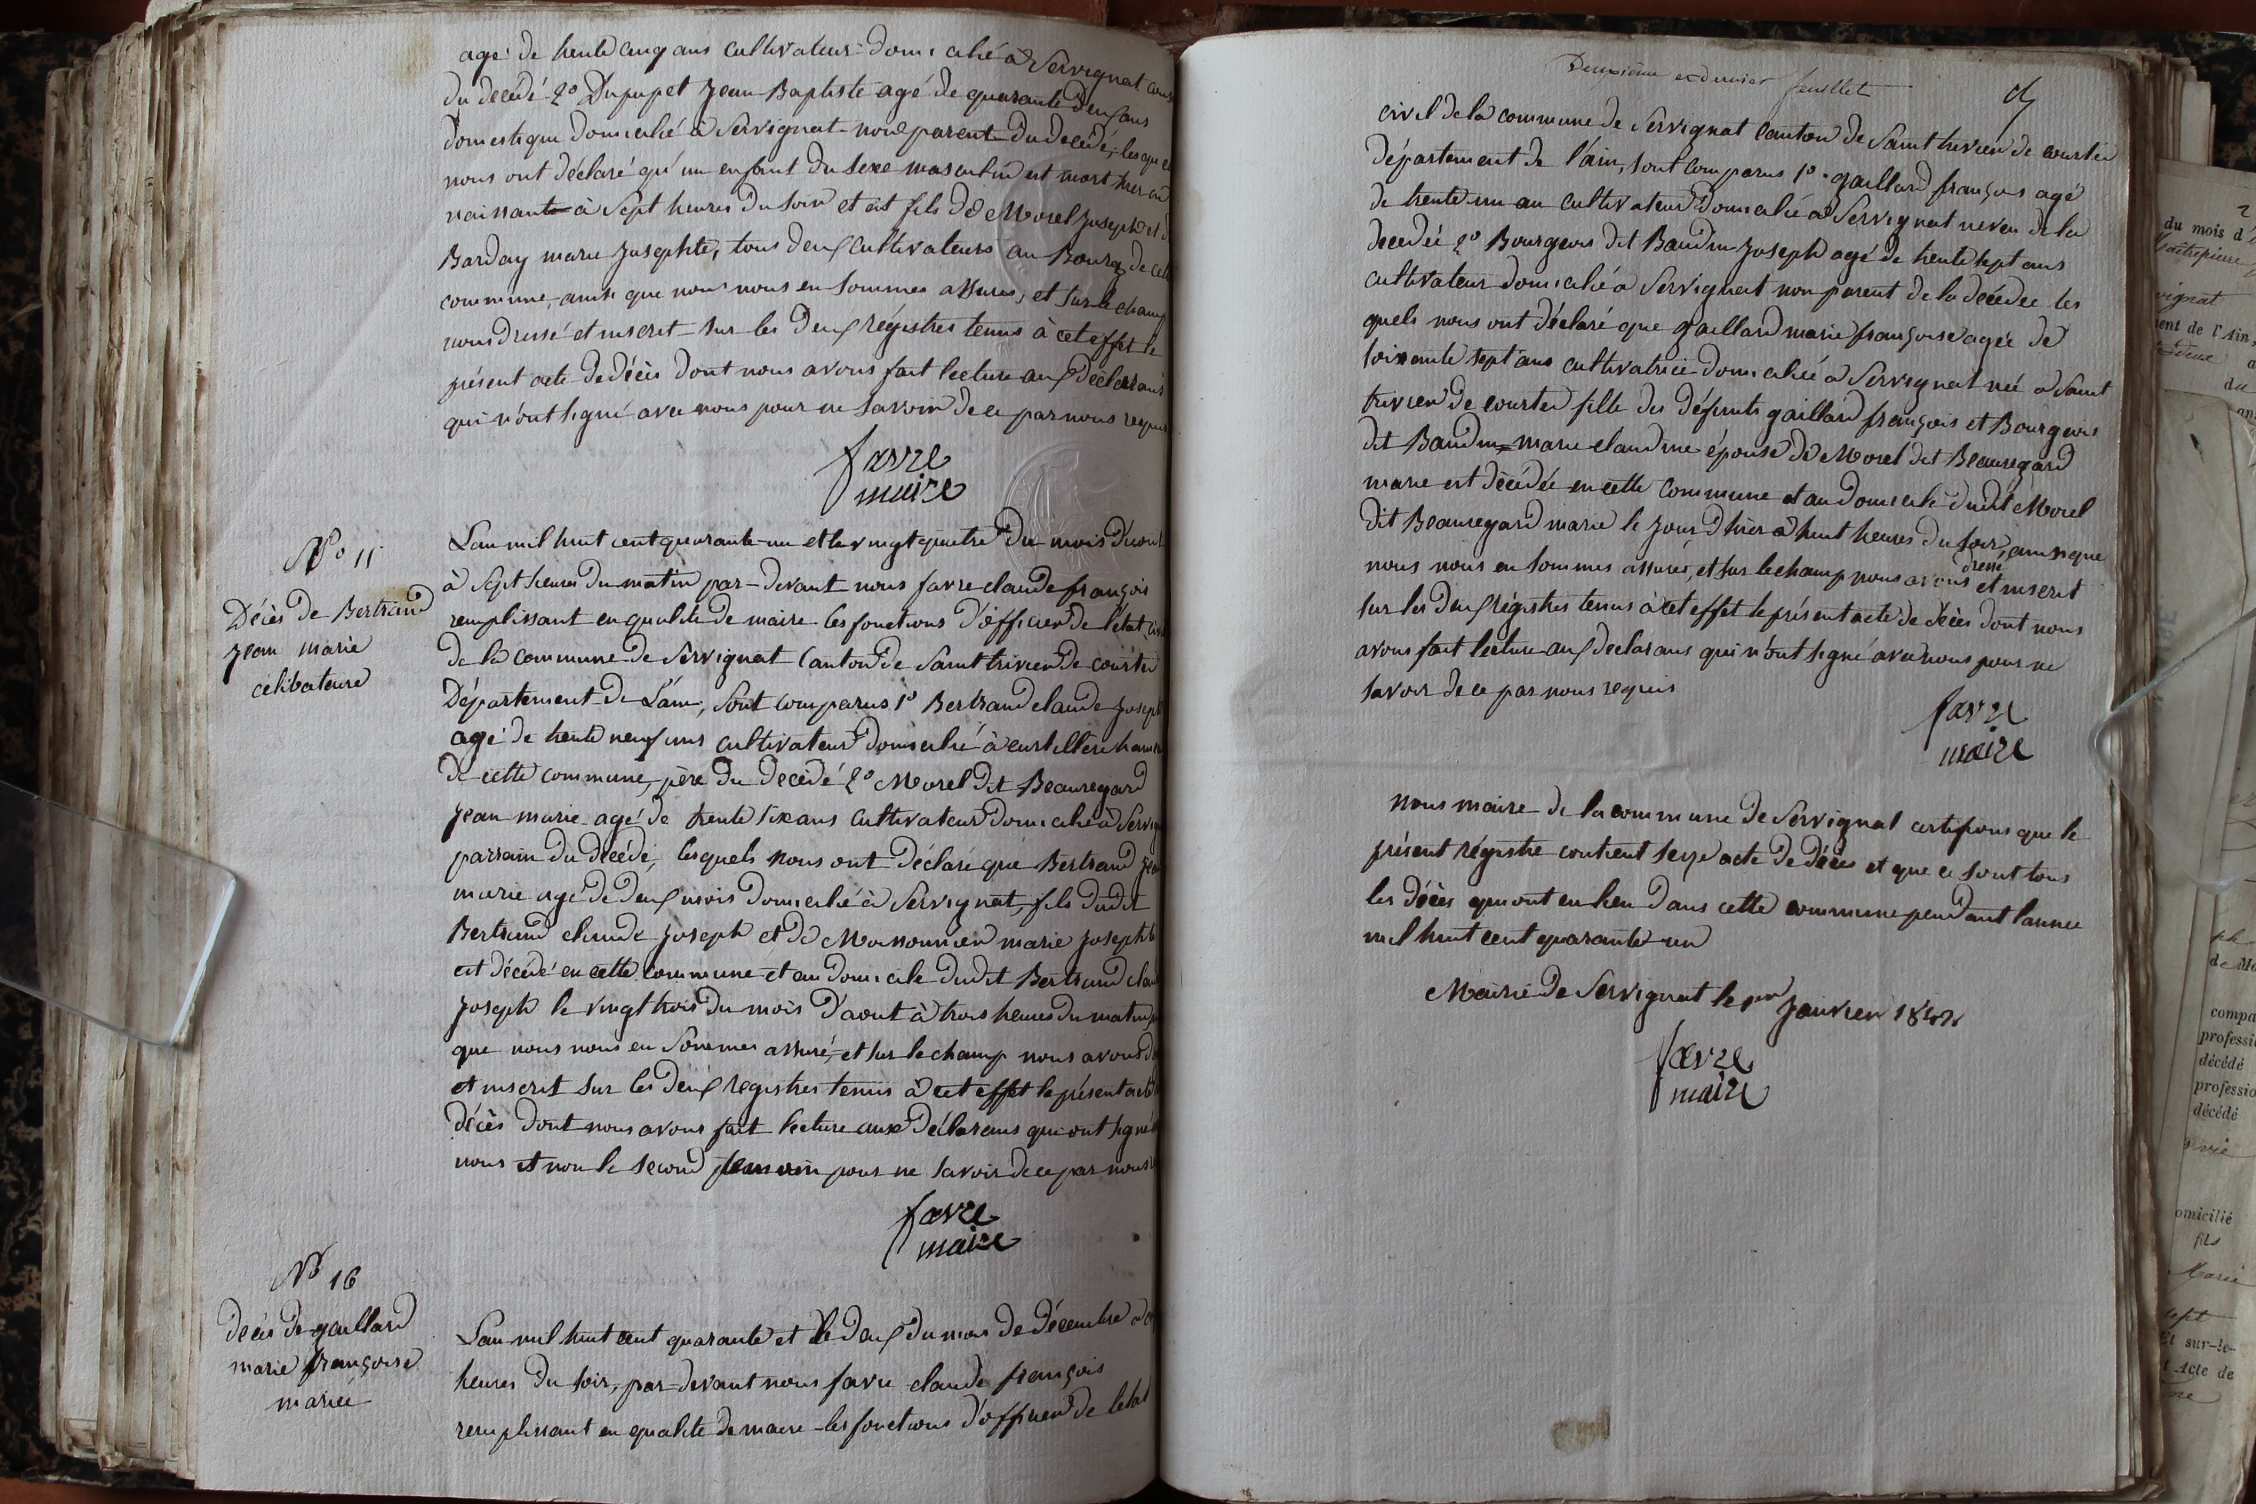 agé de trente cinq ans cultivateur domicilié à Servignat
du decédé 2o Dupupet Jean Baptiste agé de quarante deux ans
domestique domicilié à Servignat non parent du decédé, lesque
nous ont déclaré qu'un enfant du sexe masculin est mort hier en
naissant à Sept heures du soir et est fils de Morel Joseph et d
Barday marie Josephte, tous deux cultivateurs au Bourg de cett
commune, ainsi que nous nous en sommes assurés, et sur le champ
nous dressé et inscrit sur les deux régistres tenus à cet effet le
présent acte de décès dont nous avons fait lecture aux déclarans
qui n'ont signé avec nous pour ne savoir de ce par nous requis
favre
maire
No 11
Décès de Bertrand
Jean marie
célibataire
L'an mil huit cent quarante-un et le vingt quatre du mois d'aout
à Sept heures du matin par-devant nous favre claude françois
remplissant en qualité de maire les fonctions d'officier de l'état civ
de la commune de Servignat Canton de Saint trivier de courtes
Département de L'ain, Sont comparus 1o Bertrand claude Joseph
agé de trente neuf ans cultivateur domicilié à hame
de cette commune, père du decédé 2o Morel dit Beauregard
Jean-marie agé de trente six ans cultivateur domicilié à Servign
parrain du decédé, lesquels nous ont déclaré que Bertrand Jean
marie agé de deux mois domicilié à Servignat, fils dudit
Bertrand claude Joseph et de Moissonnier marie Josephte
est décédé en cette commune et au domicile dudit Bertrand clau
Joseph le vingt trois du mois d'aout à trois heures du matin,
que nous nous en sommes assuré, et sur le champ nous avons d
et inscrit sur les deux registres tenus à cet effet le présent acte
décès dont nous avons fait lecture aux déclarans qui ont signé
nous et non le second temoin pour ne savoir de ce par nous
favre
maire
No 16
décès de gaillard
marie françoise
mariée
L'an mil huit cent quarante et le deux du mois de décembre à
heures du soir, par-devant nous favre claude françois
remplissant en qualité de maire les fonctions d'officier de l'état
Deuxième et dernier feuillet
civil de la commune de Servignat canton de Saint trivier de courtes
département de l'ain, sont comparus 1o gaillard françois agé
de trente-un an cultivateur domicilié à Servignat neveu de la
decedée 2o Bourgeois dit Baudin Joseph agé de trente sept ans
cultivateur domicilié à Servignat non parent de la décédée les
quels nous ont déclaré que gaillard marie françoise agée de
soixante sept ans cultivatrice domiciliée à Servignat née à Saint
trivier de courtes fille des défunts gaillard françois et Bourgeois
dit Baudin marie claudine épouse de Morel dit Beauregard
marie est décédée en cette commune et au domicile dudit Morel
dit Beauregard marie le jour d'hier à huit heures du soir, ainsi que
nous nous en sommes assurés, et sur le champ nous avons dressé et inscrit
sur les deux régistres tenus à cet effet le présent acte de décès dont nous
avons fait lecture aux declarans qui n'ont signé avec nous pour ne
savoir de ce par nous requis
favre
maire
nous maire de la commune de Servignat certifions que le
présent régistre contient seize acte de décès et que ce sont tous
les décès qui ont eu lieu dans cette commune pendant l'année
mil huit cent quarante-un
Mairie de Servignat le 1er Janvier 1842
favre
maire
du mois d
vignat
ent de l'Ain,
du
compa
professi
décédé
professio
décédé
omicilié
fils
Marie
sept
Et sur-le-
t Acte de